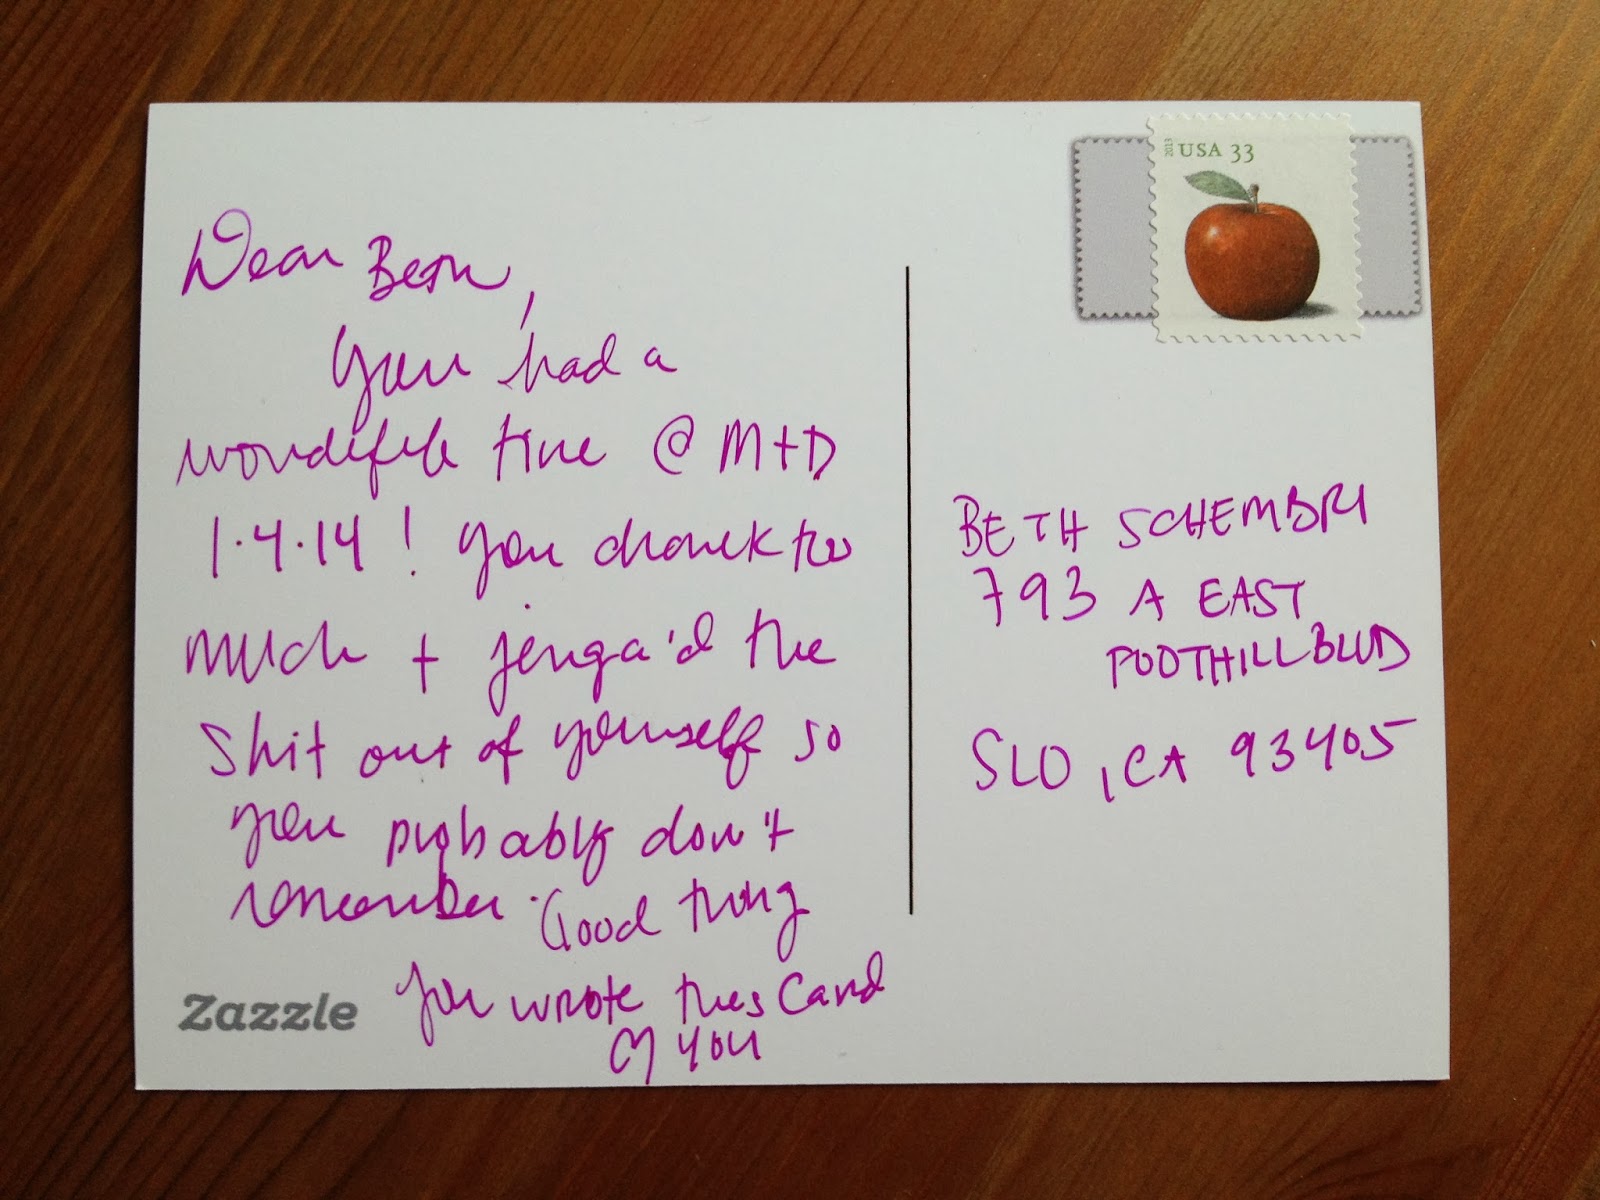 2013 USA 33
Dear Beth,
You had a
wonderful time @ M+D
1.4.14! You drank too
much + jenga'd the
Shit out of yourself so
you probably don't
remember. Good thing
you wrote this card
♡ you
Zazzle
BETH SCHEMBRI
793 A EAST
FOOTHILL BLVD
SLO, CA 93405